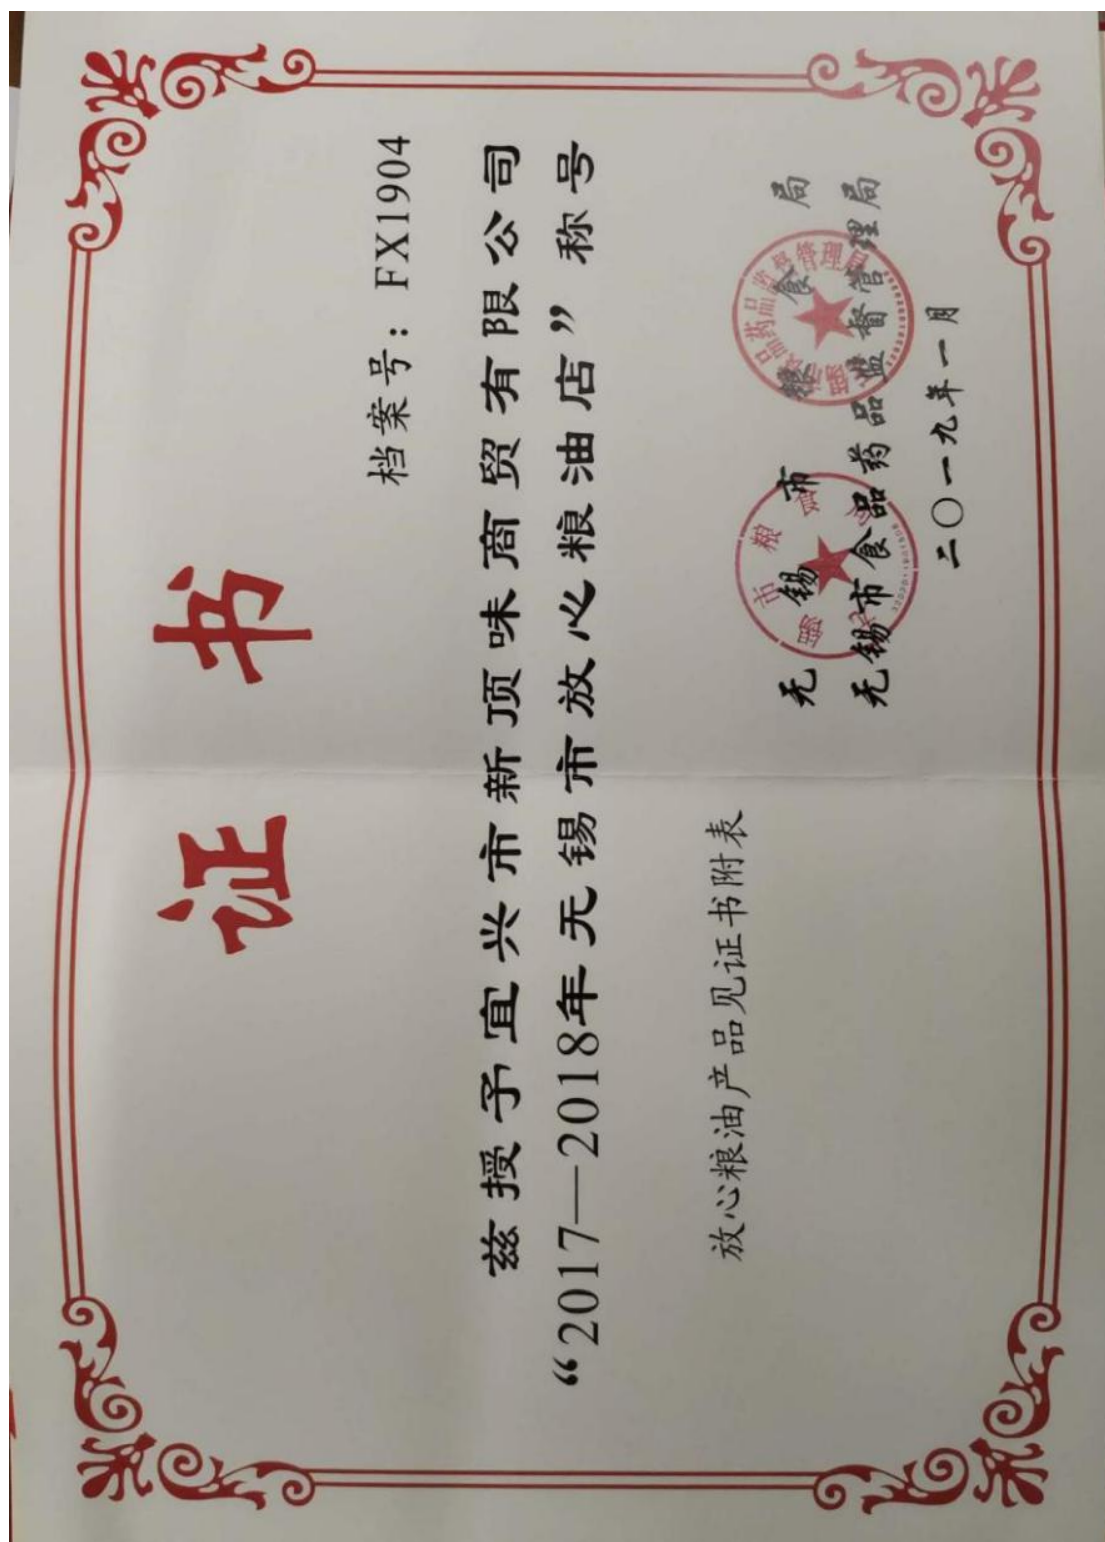 证书
档案号：FX1904
兹授予宜兴市新顶味商贸有限公司
“2017—2018年无锡市放心粮油店”称号
放心粮油产品见证书附表
无锡市粮食局
无锡市食品药品监督管理局
二〇一九年一月